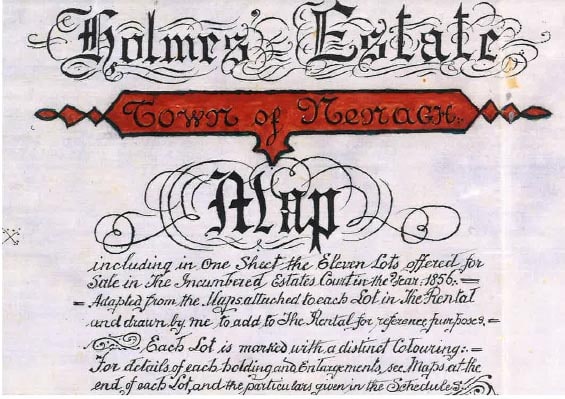 Holmes' Estate
Town of Nenagh.
Map
including in One Sheet the Eleven Lots offered for
Sale in The Incumbered Estates Court in the Year 1856:=
= Adapted from the Maps attached to each Lot in The Rental
and drawn by me to add to The Rental for reference purposes.=
Each Lot is marked with a distinct Colouring:=
For details of each holding and Enlargements, see Maps at the
end of each Lot, and the particulars given in the Schedules: